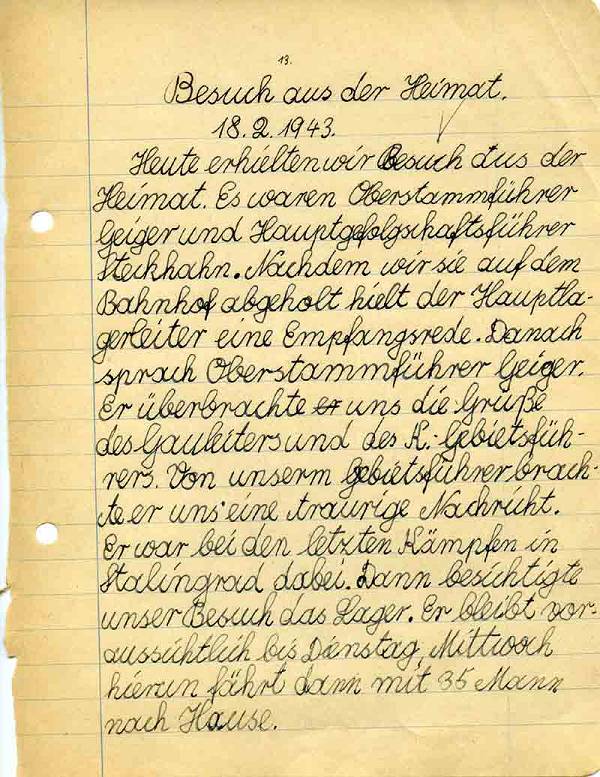 13.
Besuch aus der Heimat.
18.2.1943.
Heute erhielten wir Besuch aus der
Heimat. Es waren Oberstammführer
Geiger und Hauptgefolgschaftsführer
Steckhahn. Nachdem wir sie auf dem
Bahnhof abgeholt hielt der Hauptla-
gerleiter eine Empfangsrede. Danach
sprach Oberstammführer Geiger.
Er überbrachte er uns die Grüße
des Gauleiters und des K.-Gebietsfüh-
rers. Von unserm Gebietsführer brach-
te er uns eine traurige Nachricht.
Er war bei den letzten Kämpfen in
Stalingrad dabei. Dann besichtigte
unser Besuch das Lager. Er bleibt vor-
aussichtlich bis Dienstag, Mittwoch
fährt dann mit 35 Mann
nach Hause.